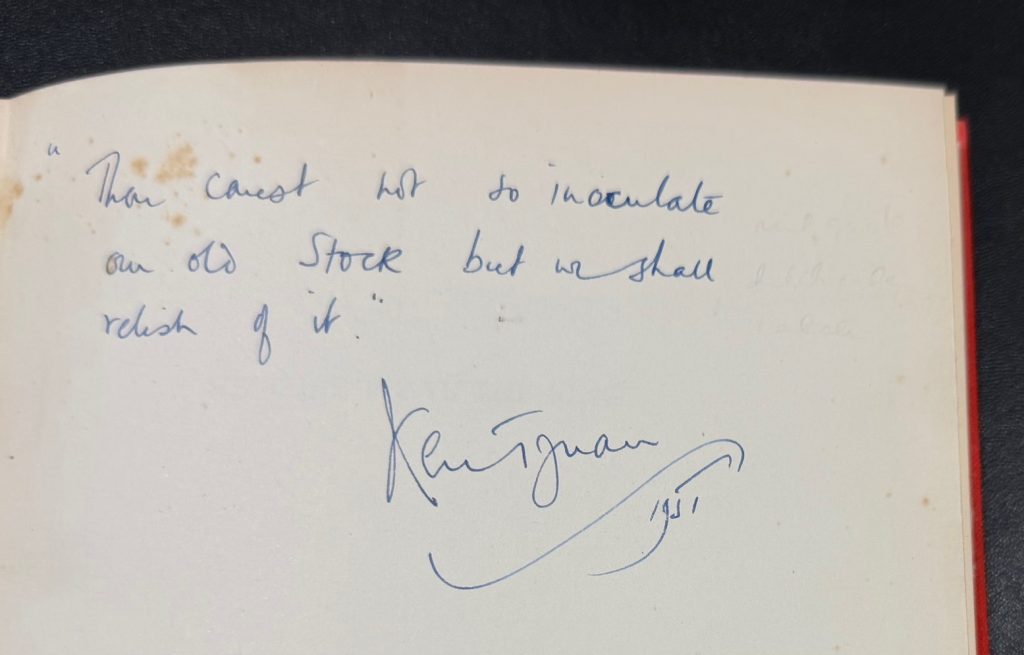 "Thou canst not so inoculate
our old Stock but we shall
relish of it."
Ken Tynan
1951